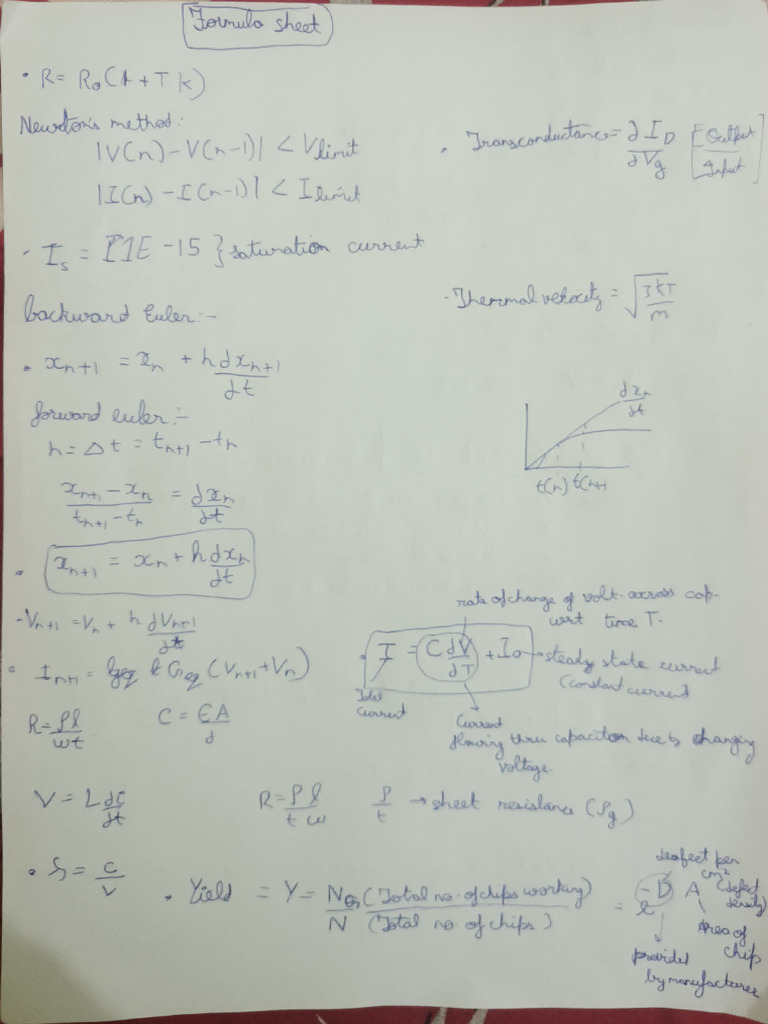 Formula sheet
• R = R₀(1 + T k)
Newton's method:
|V(n) - V(n-1)| < Vlimit
|I(n) - I(n-1)| < Ilimit
• Transconductance = ∂ I_D / ∂ V_g [Output / Input]
• I_s = 1E - 15 } saturation current
- Thermal velocity = √(3kT / m)
backward Euler:-
• x_n+1 = x_n + h dx_n+1 / dt
forward euler:-
h = Δt = t_n+1 - t_n
dx_n / dt
t(n) t(n+1
x_n+1 - x_n / t_n+1 - t_n = dx_n / dt
• x_n+1 = x_n + h dx_n / dt
- V_n+1 = V_n + h dV_n+1 / dt
rate of change of volt. across cap.
w.r.t time T.
• I = C dV / dT + I₀ → steady state current
(constant current
Total
current
Current
flowing thru capacitor due to changing
voltage.
• I_n+1 = G_eq (V_n+1 + V_n)
R = ρl / wt C = εA / d
V = L di / dt R = ρ l / t w ρ / t → sheet resistance (
• = c / v
• Yield = Y = N_G (Total no. of chips working) / N (Total no. of chips) = e^-D A
defect per
cm² (defect
density)
Area of
chip
provided
by manufacturer